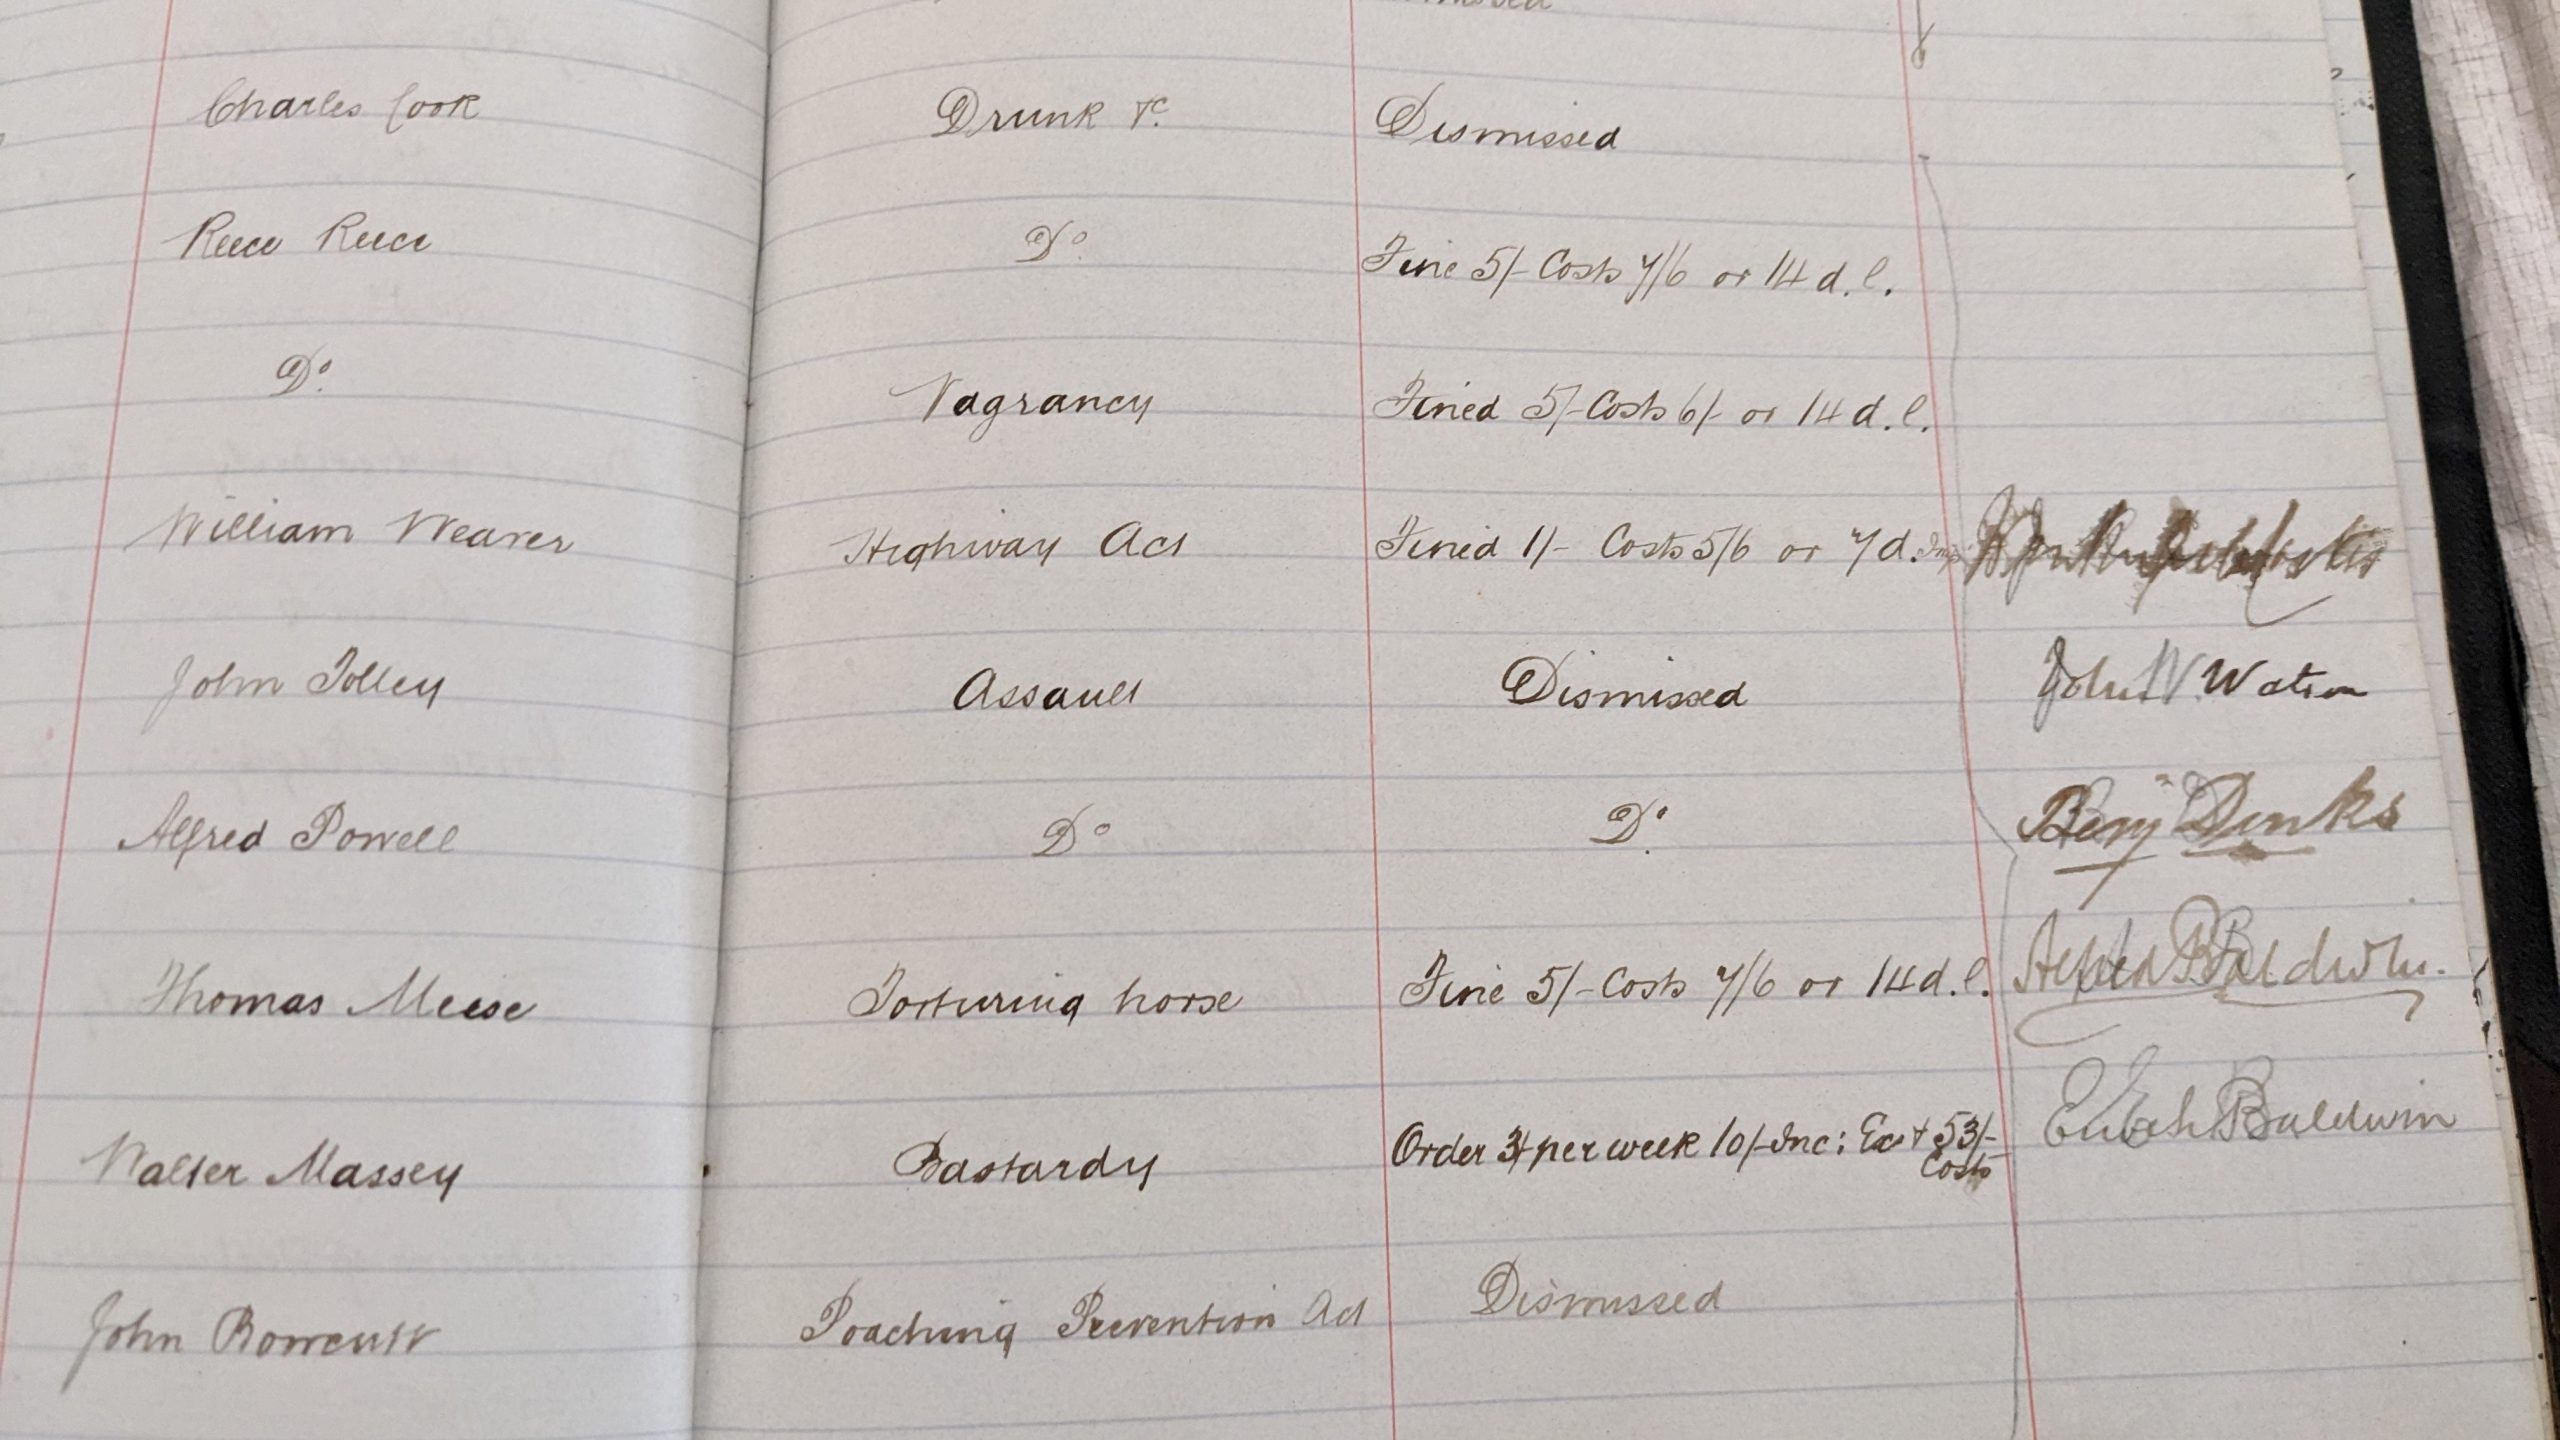 Charles Cook Drunk &c. Dismissed
Reece Reece Do. Fine 5/- Costs 7/6 or 14 d. l.
Do. Vagrancy Fined 5/- Costs 6/- or 14 d. l.
William Weaver Highway Act Fined 1/- Costs 5/6 or 7 d.
John Tolley Assault Dismissed John W. Watson
Alfred Powell Do Do. Benj
Thomas Meese Torturing horse Fine 5/- Costs 7/6 or 14 d. l. Alfred Baldwin.
Walter Massey Bastardy Order 3/- per week 10/- Inc: Ex + 53/- Enoch Baldwin
Costs
John Bowcutt Poaching Prevention Act Dismissed